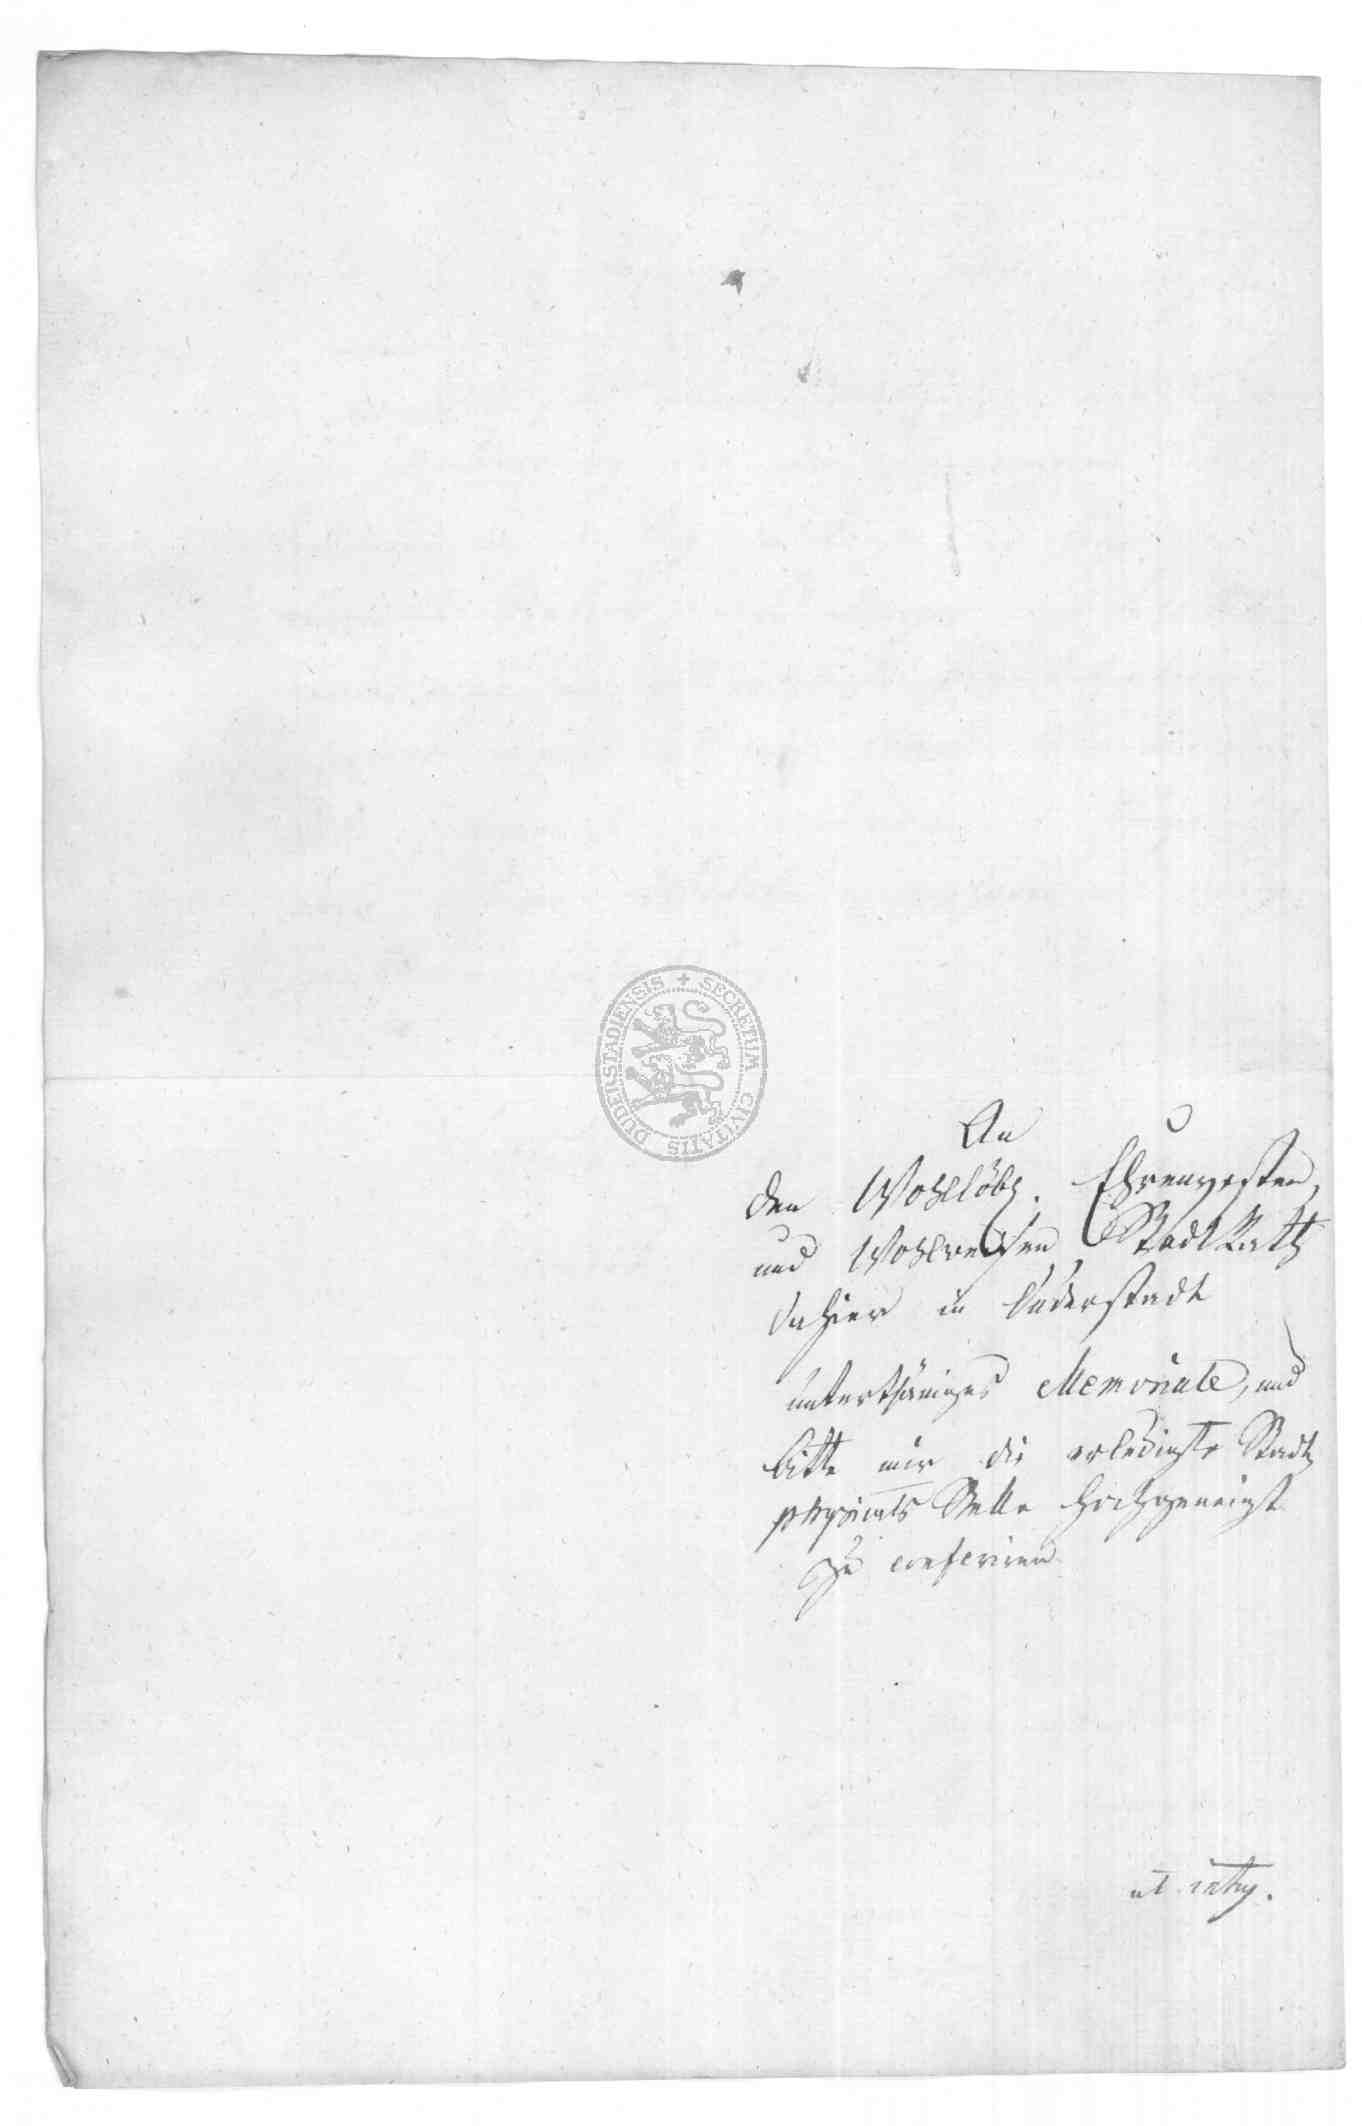 SECRETUM CIVITATIS DUDERSTADIENSIS
An
den Wohllöbl. Ehrenvesten,
und Wohlweisen StadtRath
dahier in Duderstadt
unterthäniges Memoriale, und
bitte mir die erledigte Stadt
physicats Stelle hochgeneigt
zu conferiren
ut intus.